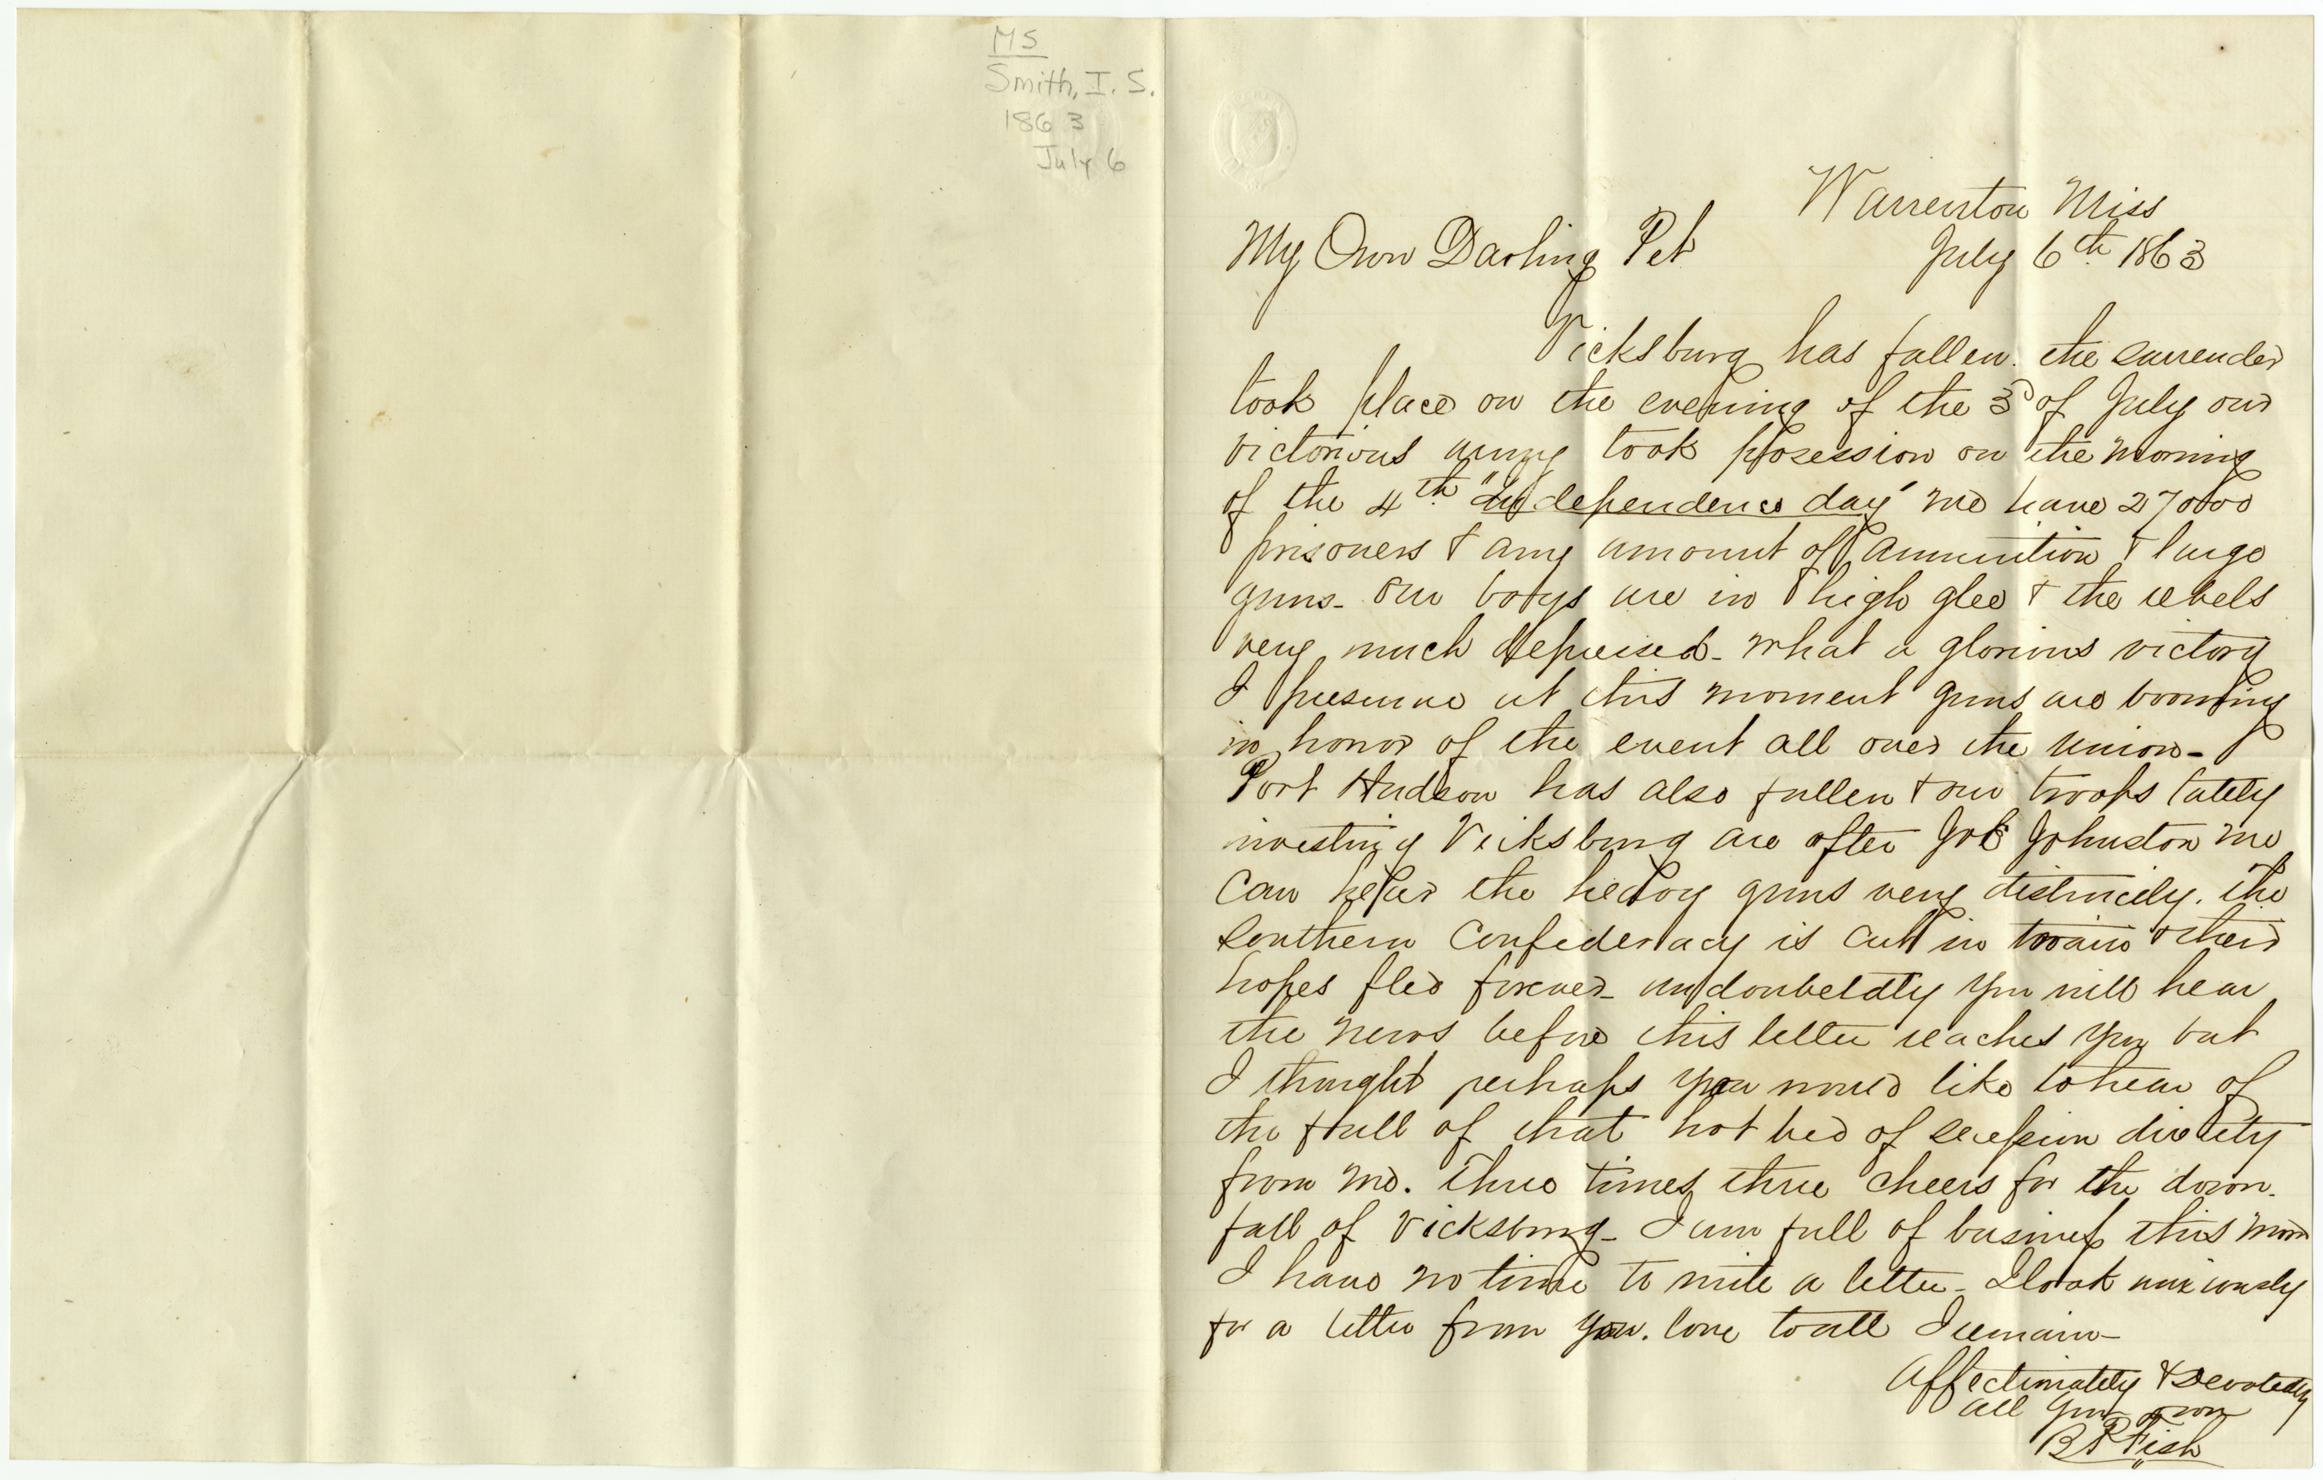 MS
Smith, I. S.
1863
July 6
Warrenton Miss
July 6th 1863
My Own Darling Pet
Vicksburg has fallen. the surrender
took place on the evening of the 3d of July our
victorious army took posession on the morning
of the 4th "Independence day" we have 27000
prisoners & any amount of ammunition & large
guns - our boys are in high glee & the rebels
very much depressed - what a glorious victory
I presume at this moment guns are booming
in honor of the event all over the union -
Port Hudson has also fallen & our troops lately
investing Vicksburg are after Joe Johnston we
can hear the heavy guns very distinctly. the
Southern Confederacy is cut in twain & their
hopes fled forever - undoubeldtly you will hear
the news before this letter reaches you but
I thought perhaps you would like to hear of
the fall of that hot bed of secession directly
from me. Three times three cheers for the down-
fall of Vicksburg - I am full of business this morn
I have no time to write a letter - I look anxiously
for a letter from you. love to all I remain -
Affectionately & Devotedly
all your own
B P Fish